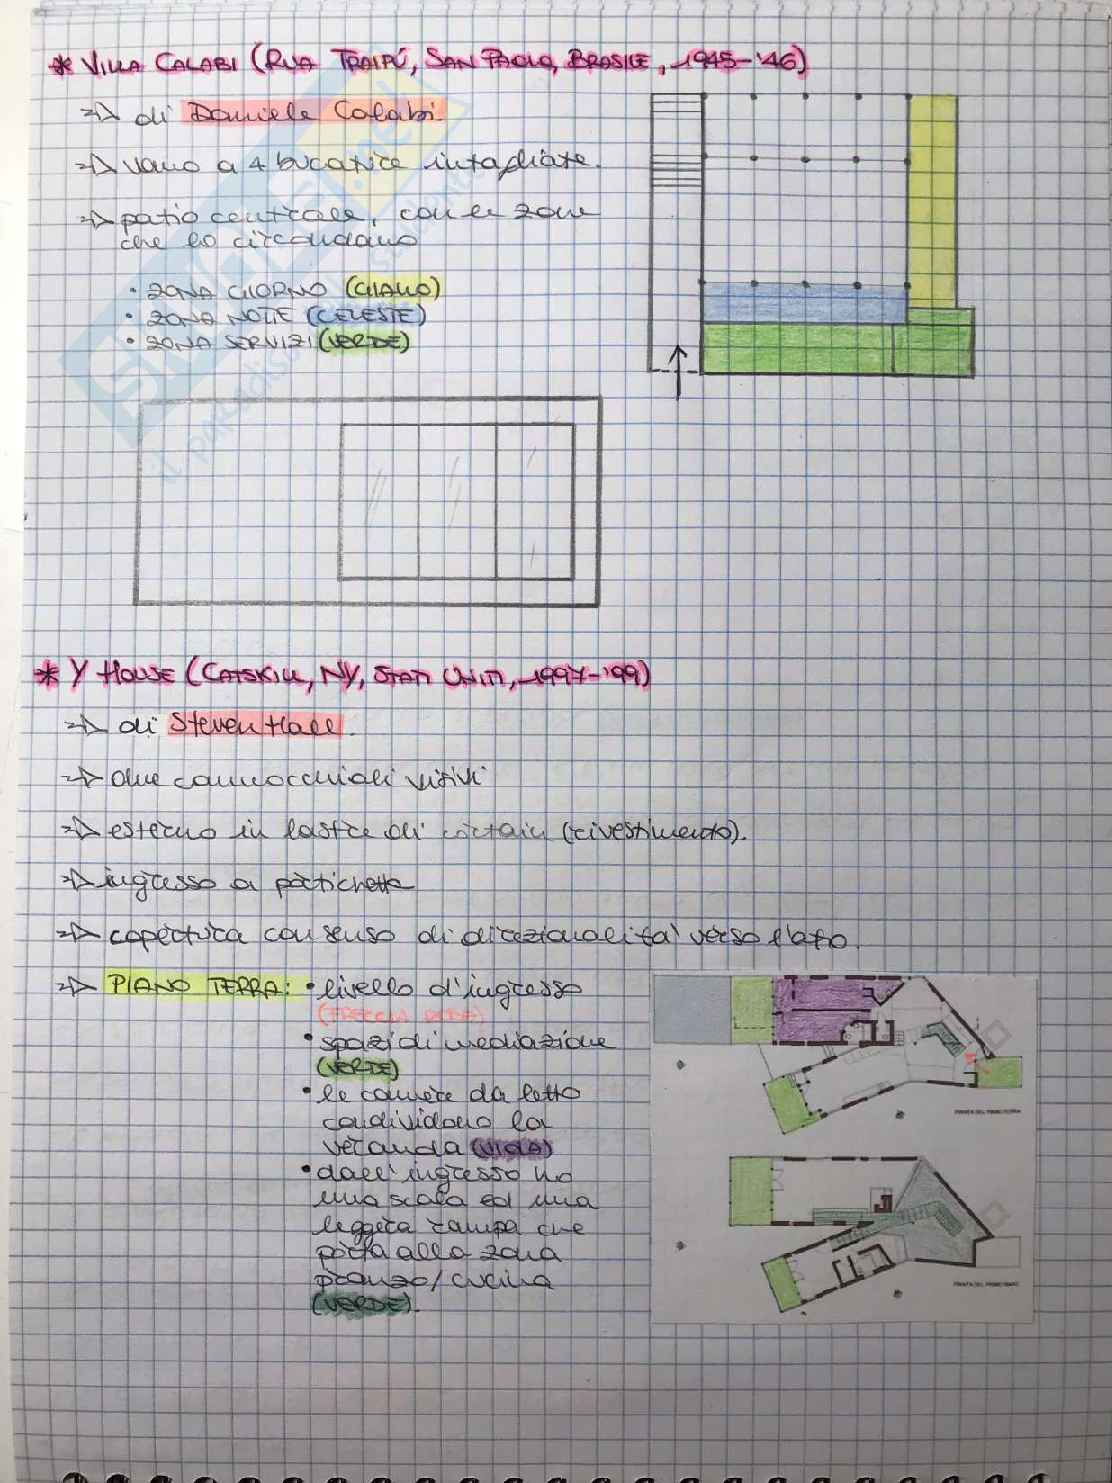 * VILLA CALABI (RUA TRAIPÚ, SAN PAOLO, BRASILE, 1945-'46)
⇒ di Daniele Calabi.
⇒ vano a 4 bucature intagliate.
⇒ patio centrale, con le zone
che lo circondano
• ZONA GIORNO (GIALLO)
• ZONA NOTTE (CELESTE)
• ZONA SERVIZI (VERDE)
* Y HOUSE (CATSKILL, NY, STATI UNITI, 1997-'99)
⇒ di Steven Holl.
⇒ due cannocchiali visivi
⇒ esterno in lastre di cortain (rivestimento).
⇒ ingresso a
⇒ copertura con senso di direzionalità verso l'alto.
⇒ PIANO TERRA: • livello d'ingresso
(FRECCIA ROSSA)
• spazi di mediazione
(VERDE)
• le camere da letto
condividono la
veranda (VIOLA)
• dall'ingresso ho
una scala ed una
leggera rampa che
porta alla zona
pranzo/cucina
(VERDE).
PIANTA DEL PIANO TERRA
PIANTA DEL PRIMO PIANO